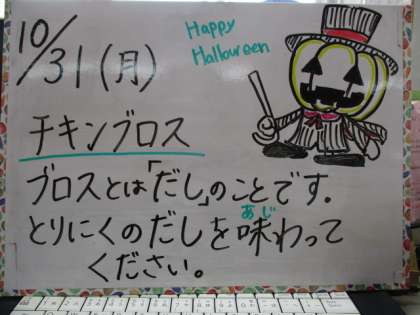 10/31(月)
Happy
Halloween
チキンブロス
ブロスとは「だし」のことです。
とりにくのだしを味わって
あじ
ください。